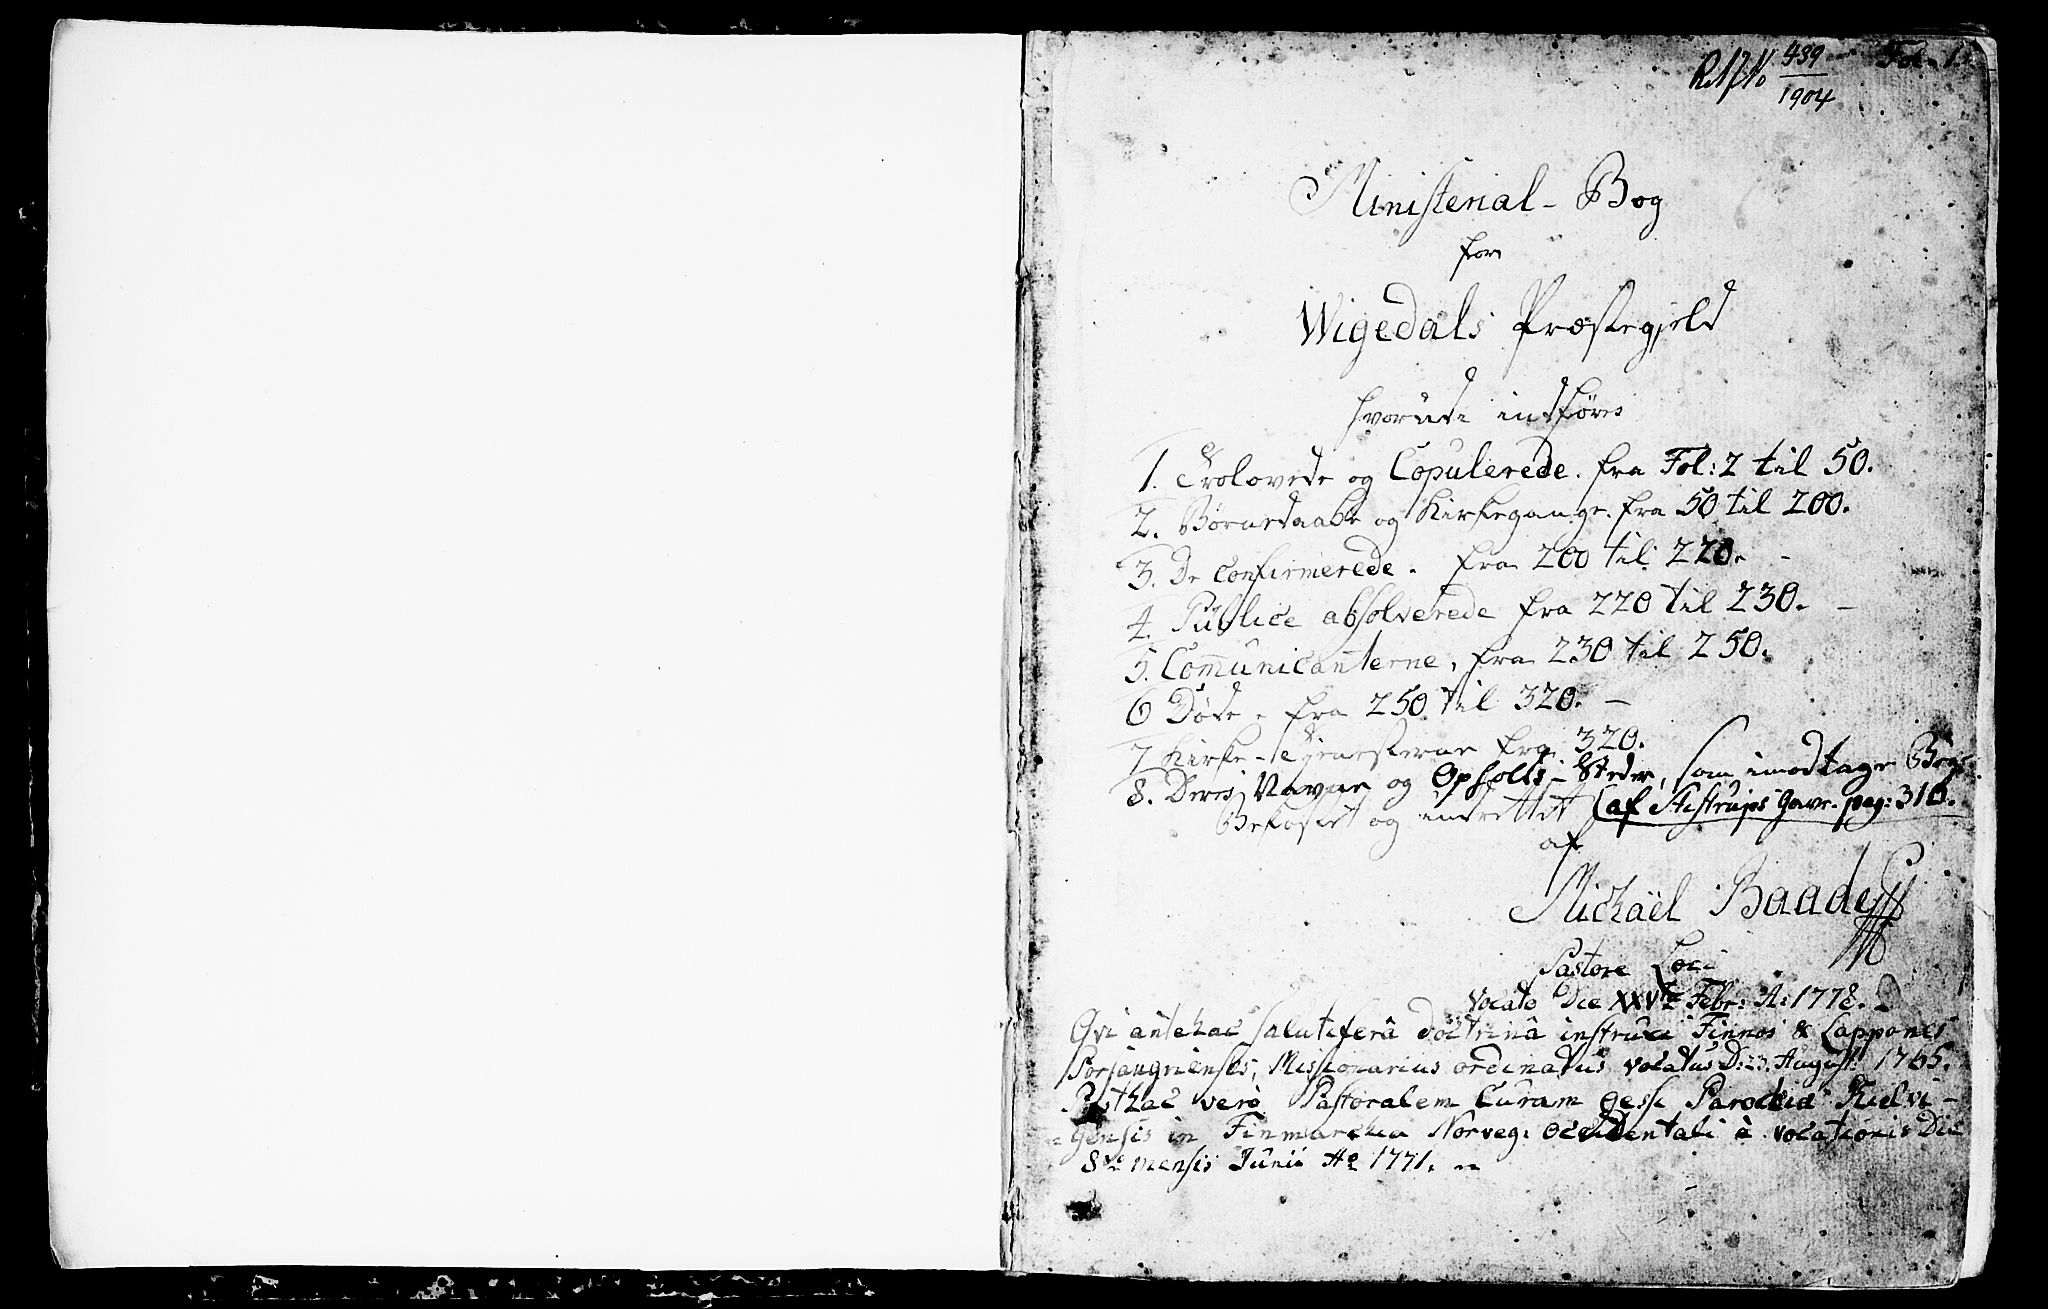 439
1904
Fol. 1.
Ministerial-Bog
for
Wigedals Præstegjeld
hvorudi indføres
1. Trolovede og Copulerede. fra Fol: 2 til 50.
2. Børnedaabe og Kirkegange. fra 50 til 200.
3. De Confirmerede. fra 200 til 220. -
4. Publice absolverede fra 220 til 230. -
5. Com̄unicanterne, fra 230 til 250.
6 Døde. fra 250 til 320. -
7 Kirke-Tjenesterne fra 320.
8. Deres Navne og Opholds-Steder, som imodtage Bøger
(af Stistrups Gave. pag: 310.
Bekostet og indrettet
af
Michaël Baade
Pastore Loci
Vocato Die XXVta Febr: A: 1778.
Qvi antehac salutiferâ doctrinâ instruxi Finnos & Lappones
Porsangrienses, Missionarius ordinatus vocatus D: 23. August: 1765.
Posthac verò Pastoralem Curam gessi Parochiæ Kielvi-
gensis in Finmarchia Norveg: occidentali à vocationis Die
8va mensis Junii Ao 1771.